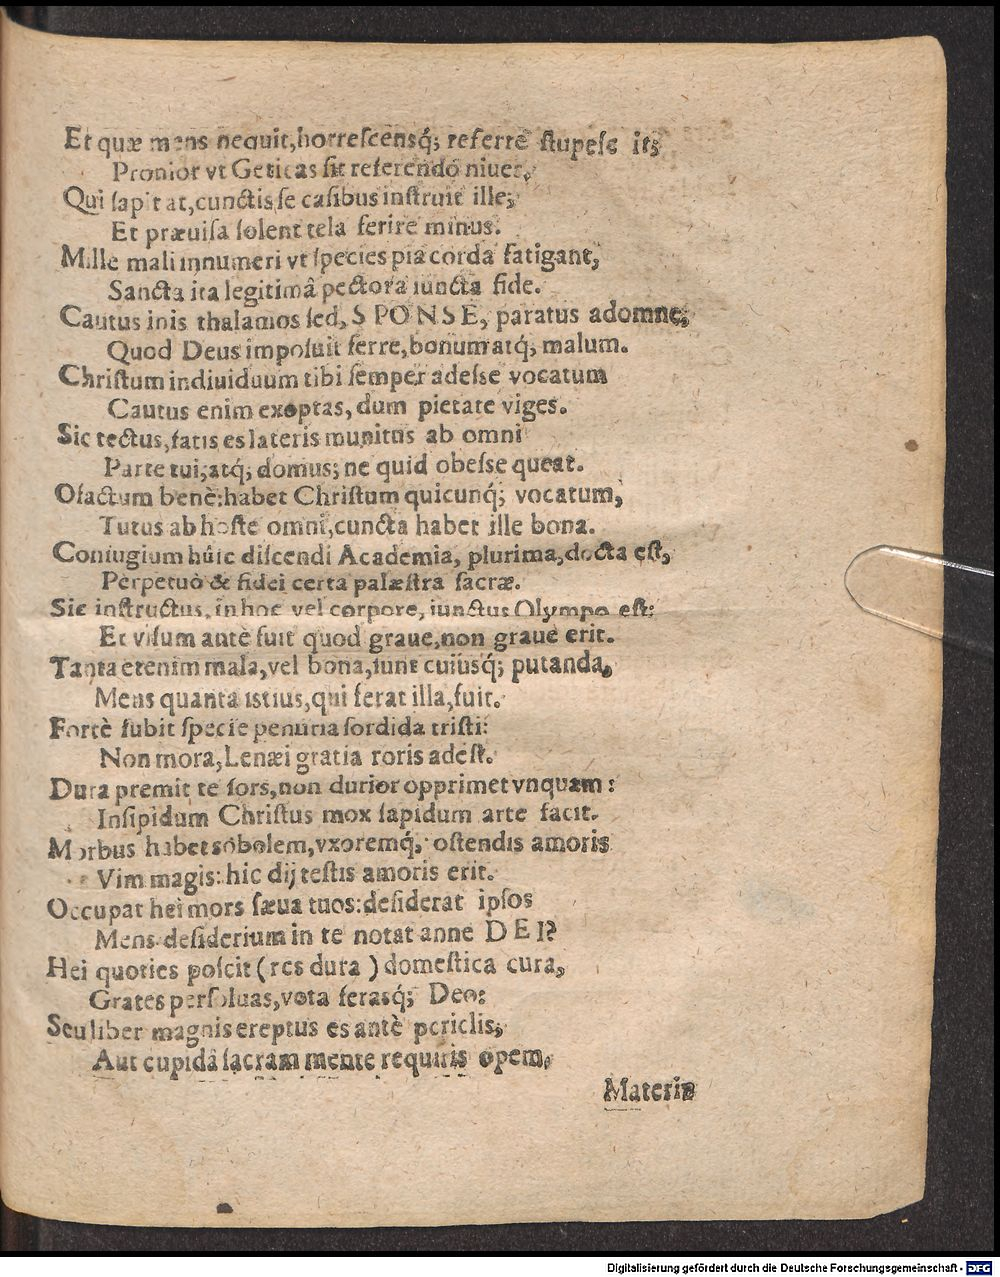 Et quæ mens nequit, horreſcensq́; referre ſtupeſc it;
Pronior vt Geticas ſit referendo niues.
Qui ſapit at, cunctis ſe caſibus inſtruit ille;
Et præuiſa ſolent tela ferire minus.
Mille mali innumeri vt ſpecies pia corda fatigant,
Sancta ita legitimâ pectora iuncta fide.
Cautus inis thalamos ſed, SPONSE, paratus ad omne;
Quod Deus impoſuit ferre, bonum atq́; malum.
Chriſtum indiuiduum tibi ſemper adeſse vocatum
Cautus enim exoptas, dum pietate viges.
Sic tectus, ſatis es lateris munitus ab omni
Parte tui; atq́; domus; ne quid obeſse queat.
O factum benè: habet Chriſtum quicunq́; vocatum,
Tutus ab hoſte omni, cuncta habet ille bona.
Coniugium hûic diſcendi Academia, plurima, docta eſt,
Perpetuò & fidei certa palæſtra ſacræ.
Sic inſtructus, in hoc vel corpore, iunctus Olympo eſt:
Et viſum antè fuit quod graue, non graue erit.
Tanta etenim mala, vel bona, ſunt cuiusq́; putanda,
Mens quanta iſtius, qui ferat illa, fuit.
Fortè ſubit ſpecie penuria ſordida triſti:
Non mora, Lenæi gratia roris adeſt.
Dura premit te ſors, non durior opprimet vnquam:
Inſipidum Chriſtus mox ſapidum arte facit.
Morbus habet sobolem, vxoremq́; oſtendis amoris
Vim magis: hic dij teſtis amoris erit.
Occupat hei mors ſæua tuos: deſiderat ipſos
Mens: deſiderium in te notat anne DEI?
Hei quoties poſcit (res dura) domeſtica cura,
Grates perſoluas, vota feraśq; Deo:
Seu liber magnis ereptus es antè periclis,
Aut cupidâ ſacram mente requiris opem,
Materia
Digitalisierung gefördert durch die Deutsche Forschungsgemeinschaft - DFG